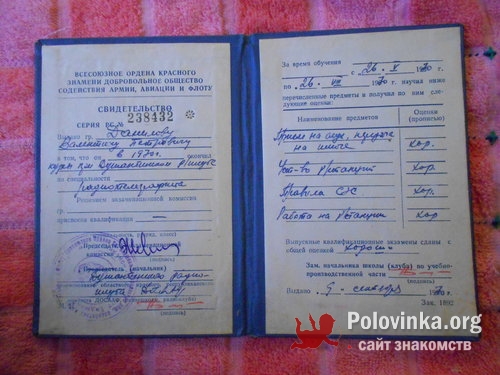 ВСЕСОЮЗНОЕ ОРДЕНА КРАСНОГО
ЗНАМЕНИ ДОБРОВОЛЬНОЕ ОБЩЕСТВО
СОДЕЙСТВИЯ АРМИИ, АВИАЦИИ И ФЛОТУ
СВИДЕТЕЛЬСТВО
СЕРИЯ № 238432
Выдано гр. Данилову
Валентину Петровичу
в том, что он в 1970 г. окончил
курсы при Душанбинском
по специальности
радиотелеграфиста
Решением экзаменационной комиссии
гр.
присвоена квалификация —
(разряда, права, класс)
Председатель
комиссии
(подпись)
Председатель (начальник)
Душанбинского радио-
клуба ДОСААФ
(подпись)
За время обучения
с 26 V 1970 г.
по 26 VIII 1970 г. изучил ниже
перечисленные предметы и получил по ним сле-
дующие оценки:
Наименование предметов
Оценки
(прописью)
Прием на слух, передача
на ключе хор.
Уст-во р/станций хор.
Правила СЭС хор.
Работа на р/станции хор
Выпускные квалификационные экзамены сданы с
общей оценкой хорошо
Зам. начальника школы (клуба) по учебно-
производственной части
(подпись)
Выдано 9 сентября 1970 г.
Зак. 1892
Polovinka.org
сайт знакомств